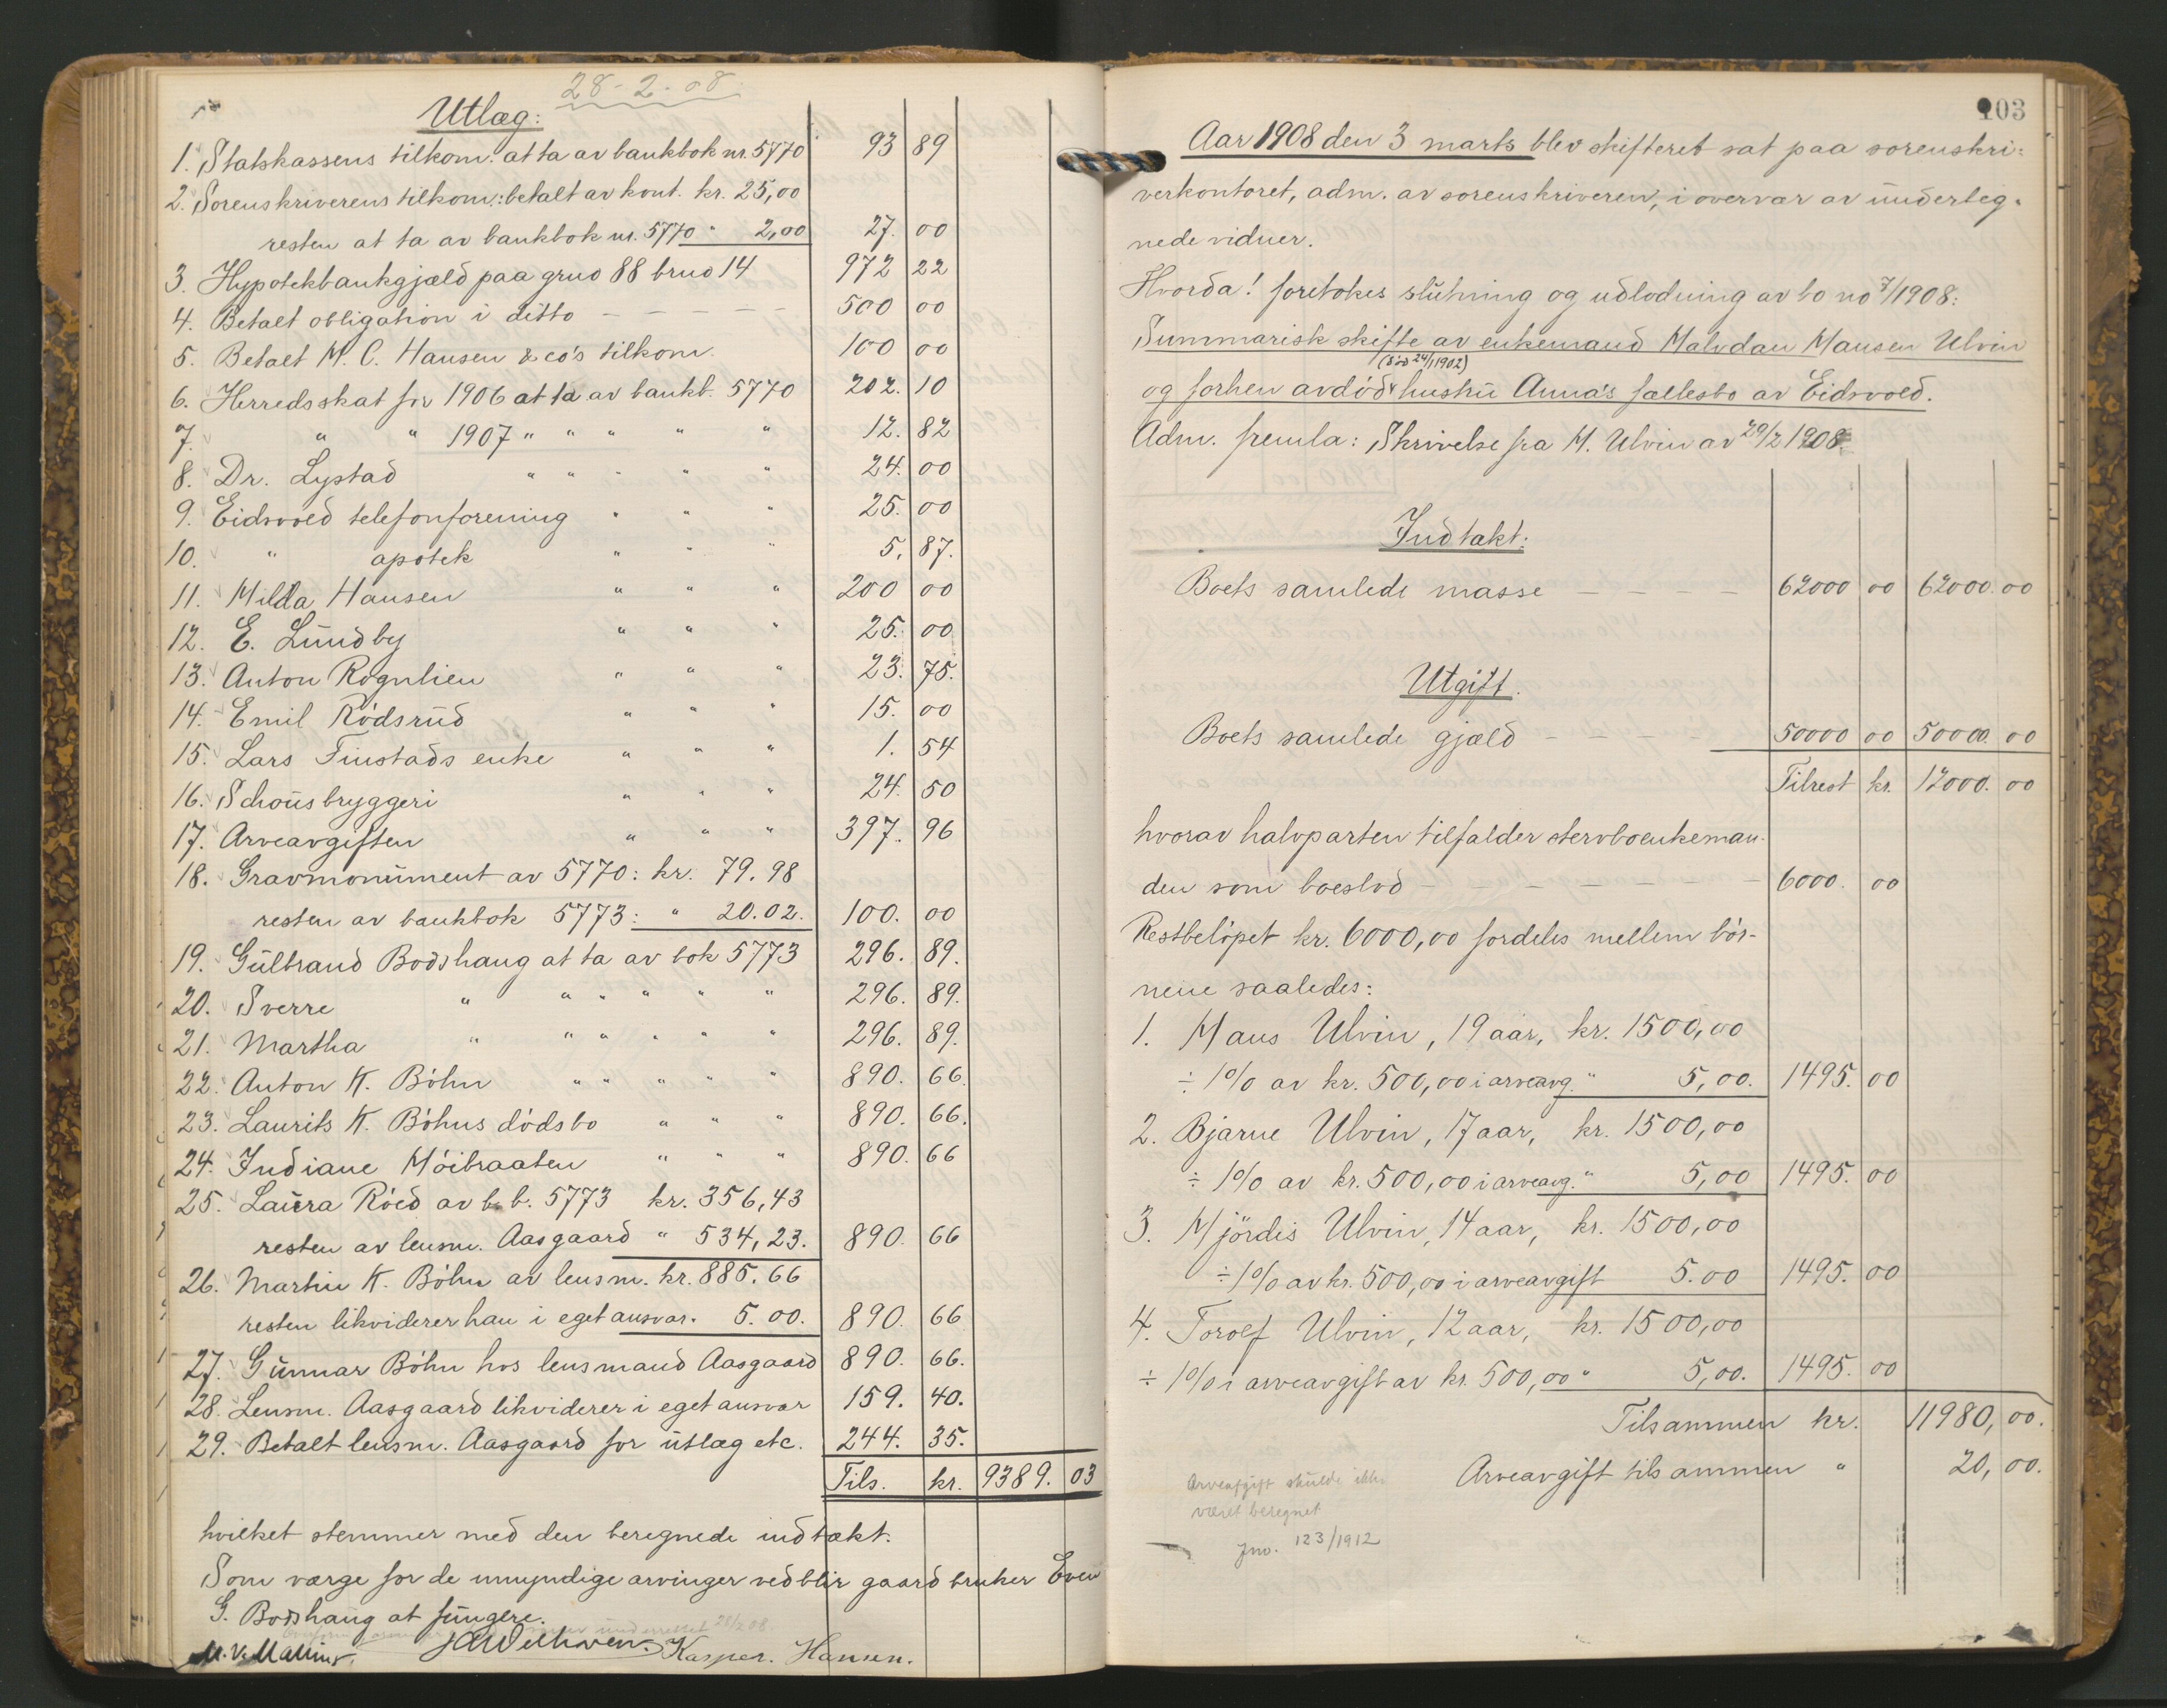 28-2-08
Utlæg:
1. Statskassens tilkom. at ta av bankbok nr. 5770 93 89
2. Sorenskriverens tilkom.: betalt av kont. kr. 25,00
resten at ta av bankbok nr. 5770 " 2,00 27. 00
3. Hypotekbankgjæld paa gruo 88 bruo 14 972 22
4. Betalt obligation i ditto – – – – – 500 00
5. Betalt M. C. Hansen & co's tilkom. 100 00
6. Herredsskat for 1906 at ta av bankb. 5770 202. 10
7. " " 1907 " " " " " 12. 82
8. Dr. Lystad " " " " " 24. 00
9. Eidsvold telefonforening " " " 25. 00
10. " apotek " " " 5. 87.
11. Hilda Hansen " " " 200 00
12. E. Lundby " " " 25. 00
13. Anton Rognlien " " " 23. 75.
14. Emil Rödsrud " " " 15. 00
15. Lars Finstads enke " " " 1. 54
16. Schous bryggeri " " " 24. 50
17. Arveavgiften " " " 397. 96
18. Gravmonument av 5770: kr. 79.98
resten av bankbok 5773: " 20.02. 100. 00
19. Gulbrand Bodshaug at ta av bok 5773 296. 89.
20. Sverre " " " " " " 296. 89.
21. Martha " " " " " " 296. 89.
22. Anton K. Böhn " " " " " 890. 66
23. Laurits K. Böhns dödsbo " " " 890. 66.
24. Indiane Möibraaten " " " 890. 66
25. Laura Röed av b. b. 5773 kr. 356,43
resten av lensm. Aasgaard " 534,23. 890. 66
26. Martin K. Böhn av lensm. kr. 885.66
resten likviderer han i eget ansvar. 5.00. 890. 66
27. Gunnar Böhn hos lensmand Aasgaard 890. 66.
28. Lensm. Aasgaard likviderer i eget ansvar 159. 40.
29. Betalt lensm. Aasgaard for utlæg etc. 244. 35.
Tils. kr. 9389. 03
hvilket stemmer med den beregnede indtækt.
Som værge for de umyndige arvinger vedblir gaardbruker Even
G. Bodshaug at fungere.
underrettet 28/2 08.
Kasper. Hansen.
103
Aar 1908 den 3 marts blev skifteret sat paa sorenskri-
verkontoret, adm. av sorenskriveren, i overvær av underteg-
nede vidner.
Hvorda! foretokes slutning og udlodning av bo no 7/1908:
Summarisk skifte av enkemand Halvdan Hansen Ulvin
(död 24/1 1902)
og forhen avdöd hustru Anna's fællesbo av Eidsvold.
Adm. fremla: Skrivelse fra H. Ulvin av 29/2 1908
Indtækt:
Boets samlede masse – – – – 62000 00 62000. 00
Utgift.
Boets samlede gjæld – – – – 50000 00 50000. 00
Tilrest kr. 12000. 00
hvorav halvparten tilfalder stervboenkeman-
den som boeslod – – – – – – – 6000. 00
Restbelöpet kr. 6000,00 fordeles mellem bör-
nene saaledes:
1. Hans Ulvin, 19 aar, kr. 1500,00
÷ 1% av kr. 500,00 i arveavg. " 5,00. 1495. 00
2. Bjarne Ulvin, 17 aar, kr. 1500,00
÷ 1% av kr. 500,00 i arveavg. " 5,00 1495. 00
3. Hjördis Ulvin, 14 aar, kr. 1500,00
÷ 1% av kr. 500,00 i arveavgift 5.00 1495. 00
4. Torolf Ulvin, 12 aar, kr. 1500,00
÷ 1% i arveavgift av kr. 500,00 " 5,00. 1495. 00
Tilsammen kr. 11980,00.
Arveavgift tilsammen " 20,00.
Arveafgift skulde ikke
været beregnet
Jno. 123/1912